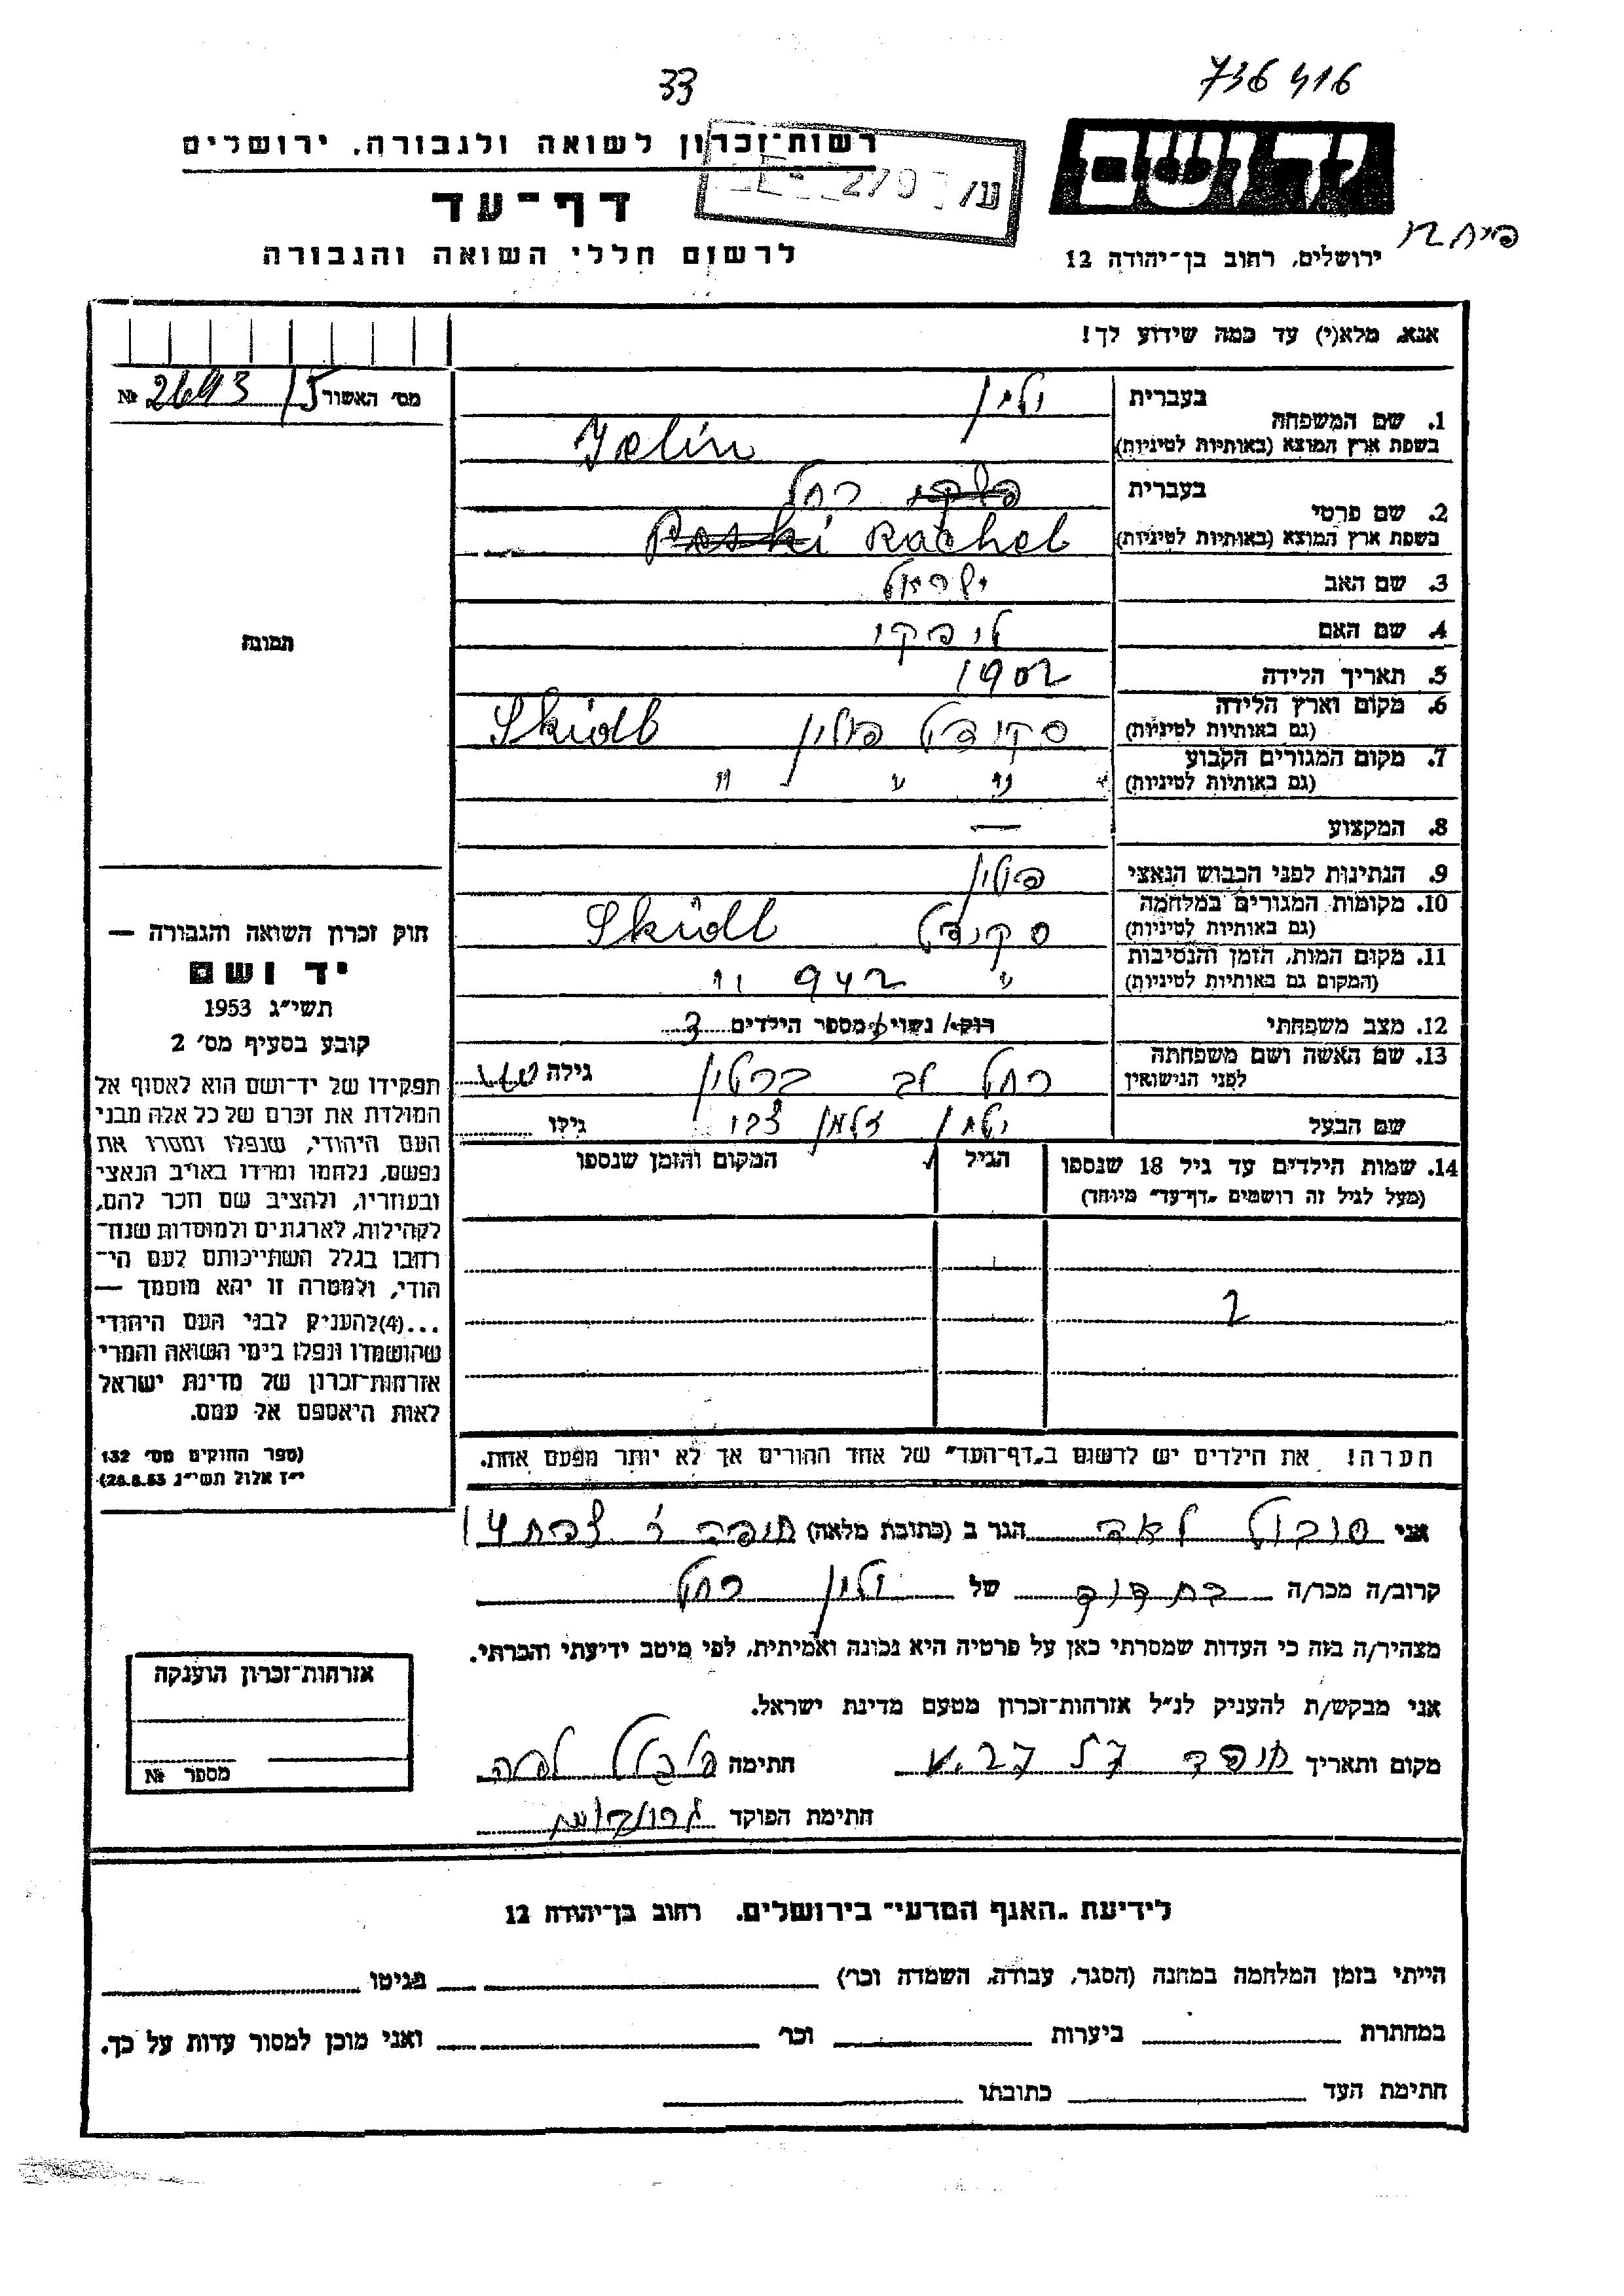 33
736416
רשות־זכרון לשואה ולגבורה, ירושלים
יד ושם
דף־עד
לרשום חללי השואה והגבורה
ירושלים, רחוב בן־יהודה 12
אנא, מלא(י) עד כמה שידוע לך!
מס׳ האשור 2693/5 №
1. שם המשפחה
בעברית ילין
בשפת ארץ המוצא (באותיות לטיניות) Jelin
2. שם פרטי
בעברית רחל
בשפת ארץ המוצא (באותיות לטיניות) Peski Rachel
3. שם האב ישראל
4. שם האם
5. תאריך הלידה 1902
6. מקום וארץ הלידה (גם באותיות לטיניות) סקידל פולין Skidl
7. מקום המגורים הקבוע (גם באותיות לטיניות) " " " "
8. המקצוע —
9. הנתינות לפני הכבוש הנאצי פולין
10. מקומות המגורים במלחמה (גם באותיות לטיניות) סקידל Skidl
11. מקום המות, הזמן והנסיבות (המקום גם באותיות לטיניות) " 942 "
12. מצב משפחתי רוק/ נשוי/ מספר הילדים
13. שם האשה ושם משפחתה לפני הנישואין רחל לב גילה
שם הבעל ילין זלמן גילו
14. שמות הילדים עד גיל 18 שנספו (מעל לגיל זה רושמים „דף־עד״ מיוחד)
הגיל
המקום והזמן שנספו
2
הערה! את הילדים יש לרשום ב„דף־העד״ של אחד ההורים אך לא יותר מפעם אחת.
תמונה
חוק זכרון השואה והגבורה —
יד ושם
תשי״ג 1953
קובע בסעיף מס׳ 2
תפקידו של יד־ושם הוא לאסוף אל
המולדת את זכרם של כל אלה מבני
העם היהודי, שנפלו ומסרו את
נפשם, נלחמו ומרדו באויב הנאצי
ובעוזריו, ולהציב שם וזכר להם,
לקהילות, לארגונים ולמוסדות שנח־
רבו בגלל השתייכותם לעם הי־
הודי, ולמטרה זו יהא מוסמך —
...(4)להעניק לבני העם היהודי
שהושמדו ונפלו בימי השואה והמרי
אזרחות־זכרון של מדינת ישראל
לאות היאספם אל עמם.
(ספר החוקים מס׳ 132
י״ז אלול תשי״ג 28.8.53)
אני סובול לאה הגר ב (כתובת מלאה)
קרוב/ה מכר/ה בת דוד של ילין רחל
מצהיר/ה בזה כי העדות שמסרתי כאן על פרטיה היא נכונה ואמיתית, לפי מיטב ידיעתי והכרתי.
אני מבקש/ת להעניק לנ״ל אזרחות־זכרון מטעם מדינת ישראל.
מקום ותאריך חתימה
חתימת הפוקד
אזרחות־זכרון הוענקה
מספר №
לידיעת „האגף המדעי״ בירושלים, רחוב בן־יהודה 12
הייתי בזמן המלחמה במחנה (הסגר, עבודה, השמדה וכר׳) בגיטו
במחתרת ביערות וכר׳ ואני מוכן למסור עדות על כך.
חתימת העד כתובתו